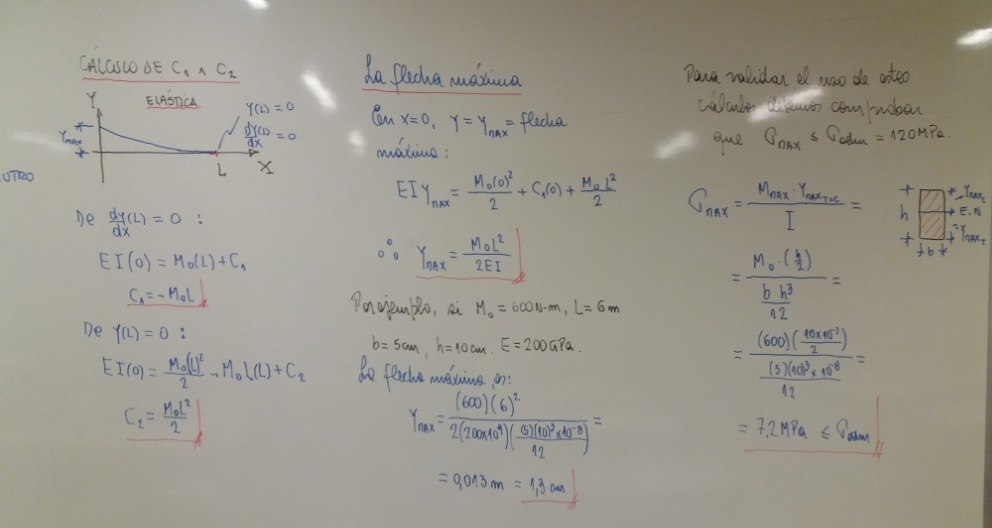 CÁLCULO DE C₁ ∧ C₂
ELÁSTICA
Y
Y(L) = 0
dY(L)/dx = 0
Yₘₐₓ
L
X
UTRO
De dY(L)/dx = 0 :
EI(0) = M₀(L) + C₁
C₁ = - M₀L
De Y(L) = 0 :
EI(0) = M₀(L)²/2 - M₀L(L) + C₂
C₂ = M₀L²/2
La flecha máxima
En X=0, Y = Yₘₐₓ = flecha
máxima :
EI Yₘₐₓ = M₀(0)²/2 + C₁(0) + M₀L²/2
∴ Yₘₐₓ = M₀L²/2EI
Por ejemplo, si M₀ = 600 N-m, L = 6 m
b = 5 cm, h = 10 cm. E = 200 GPa.
La flecha máxima, es:
Yₘₐₓ = (600)(6)²/2(200x10⁹)((5)(10)³x10⁻⁸/12) =
= 0,013 m = 1,3 cm
Para validar el uso de estos
cálculos debemos comprobar
que σₘₐₓ ≤ σadm = 120 MPa.
σₘₐₓ = Mₘₐₓ · Yₘₐₓ TºC/I =
h
b
Yₘₐₓ C
E.N
Yₘₐₓ T
= M₀ · (h/2)/(b h³/12) =
= (600)(10x10⁻²/2)/((5)(10)³x10⁻⁸/12) =
= 7,2 MPa ≤ σadm